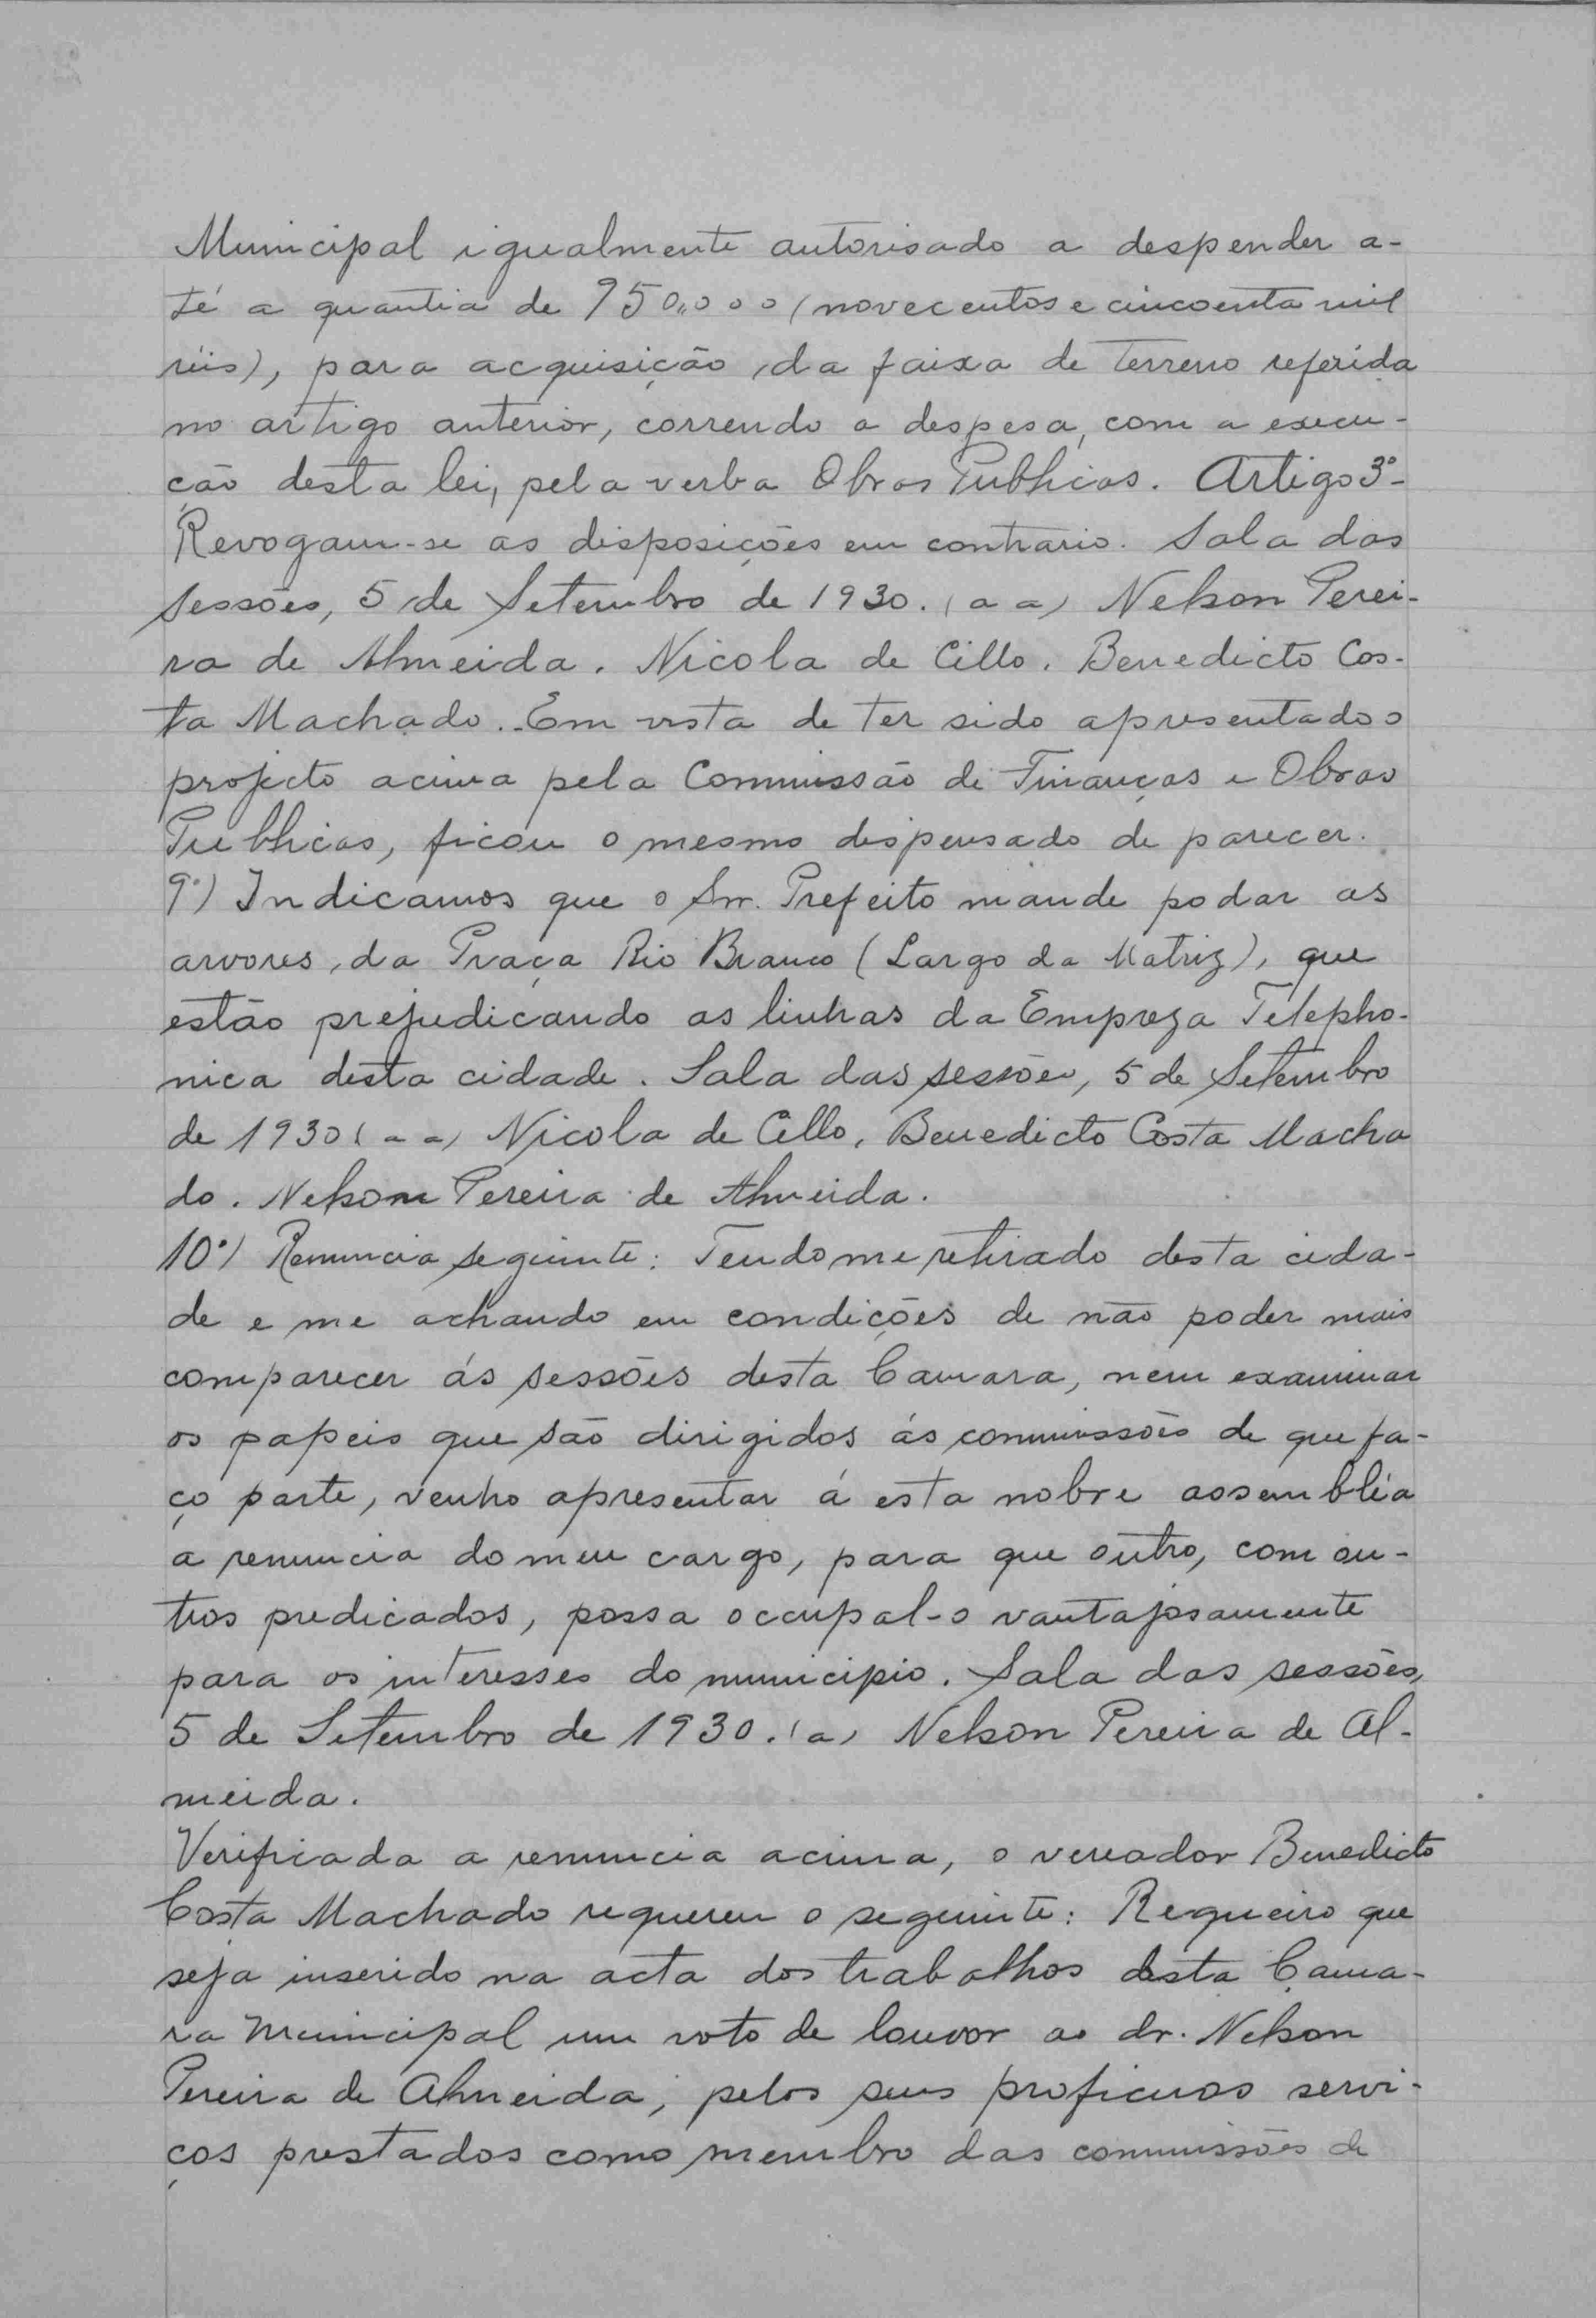 Municipal igualmente autorisado a despender a-
té a quantia de 950,,000 (novecentos e cincoenta mil
réis), para acquisição da faixa de terreno referida
no artigo anterior, correndo a despesa, com a execu-
ção desta lei, pela verba Obras Publicas. Artigo 3º-
Revogam-se as disposições em contrario. Sala das
sessões, 5 de Setembro de 1930. (a a) Nelson Perei-
ra de Almeida. Nicola de Cillo. Benedicto Cos-
ta Machado. Em vista de ter sido apresentado o
projecto acima pela Commissão de Finanças e Obras
Publicas, ficou o mesmo dispensado de parecer.
9º) Indicamos que o Snr. Prefeito mande podar as
arvores, da Praça Rio Branco (Largo da Matriz), que
estão prejudicando as linhas da Empreza Telepho-
nica desta cidade. Sala das sessões, 5 de Setembro
de 1930 (a a) Nicola de Cillo, Benedicto Costa Macha
do. Nelson Pereira de Almeida.
10º) Renuncia seguinte: Tendo me retirado desta cida-
de e me achando em condições de não poder mais
comparecer ás sessões desta Camara, nem examinar
os papeis que são dirigidos ás commissões de que fa-
ço parte, venho apresentar á esta nobre assembléa
a renuncia do meu cargo, para que outro, com ou-
tros predicados, possa occupal-o vantajosamente
para os interesses do municipio. Sala das sessões,
5 de Setembro de 1930. (a) Nelson Pereira de Al-
meida.
Verificada a renuncia acima, o vereador Benedicto
Costa Machado requereu o seguinte: Requeiro que
seja inserido na acta dos trabalhos desta Cama-
ra Municipal um voto de louvor ao dr. Nelson
Pereira de Almeida, pelos seus proficuos servi-
ços prestados como membro das commissões de